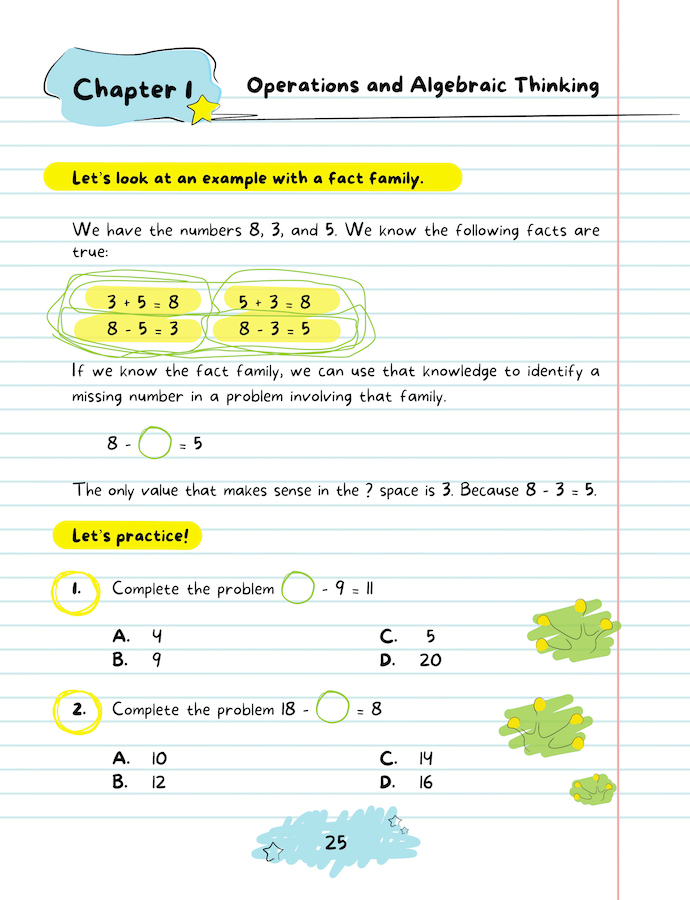 Chapter 1
Operations and Algebraic Thinking
Let's look at an example with a fact family.
We have the numbers 8, 3, and 5. We know the following facts are
true:
3 + 5 = 8 5 + 3 = 8
8 - 5 = 3 8 - 3 = 5
If we know the fact family, we can use that knowledge to identify a
missing number in a problem involving that family.
8 - = 5
The only value that makes sense in the ? space is 3. Because 8 - 3 = 5.
Let's practice!
1. Complete the problem - 9 = 11
A. 4 C. 5
B. 9 D. 20
2. Complete the problem 18 - = 8
A. 10 C. 14
B. 12 D. 16
25